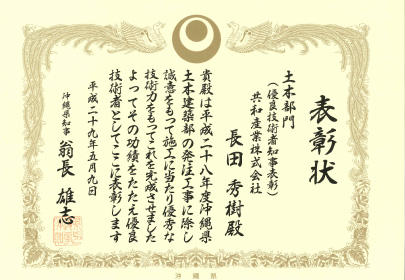 表彰状
土木部門
（優良技術者知事表彰）
共和産業株式会社
長田 秀樹殿
貴殿は平成二十八年度沖縄県
土木建築部の発注工事に際し
誠意をもって施工に当たり優秀な
技術力をもってこれを完成させました
よってその功績をたたえ優良
技術者としてここに表彰します
平成二十九年五月九日
沖縄県知事 翁長 雄志
沖縄県